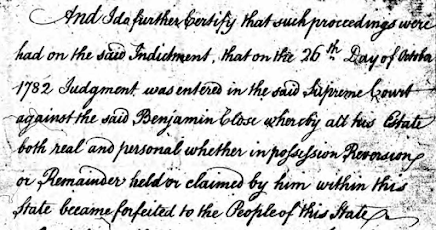 And I do further Certify that such proceedings were
had on the said Indictment, that on the 26th Day of October
1782 Judgment was entered in the said Supreme Court
against the said Benjamin Close whereby all his Estate
both real and personal whether in possession Reversion
or Remainder held or claimed by him within this
State became forfeited to the People of this State